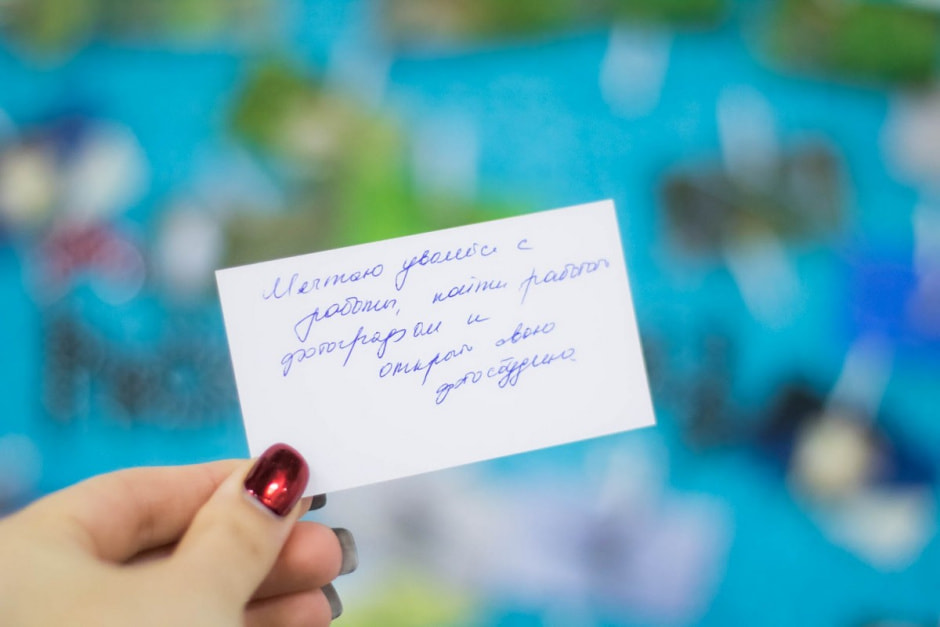 Мечтаю уволиться с
работы, найти работой
фотографом и
открыть свою
фотостудию.